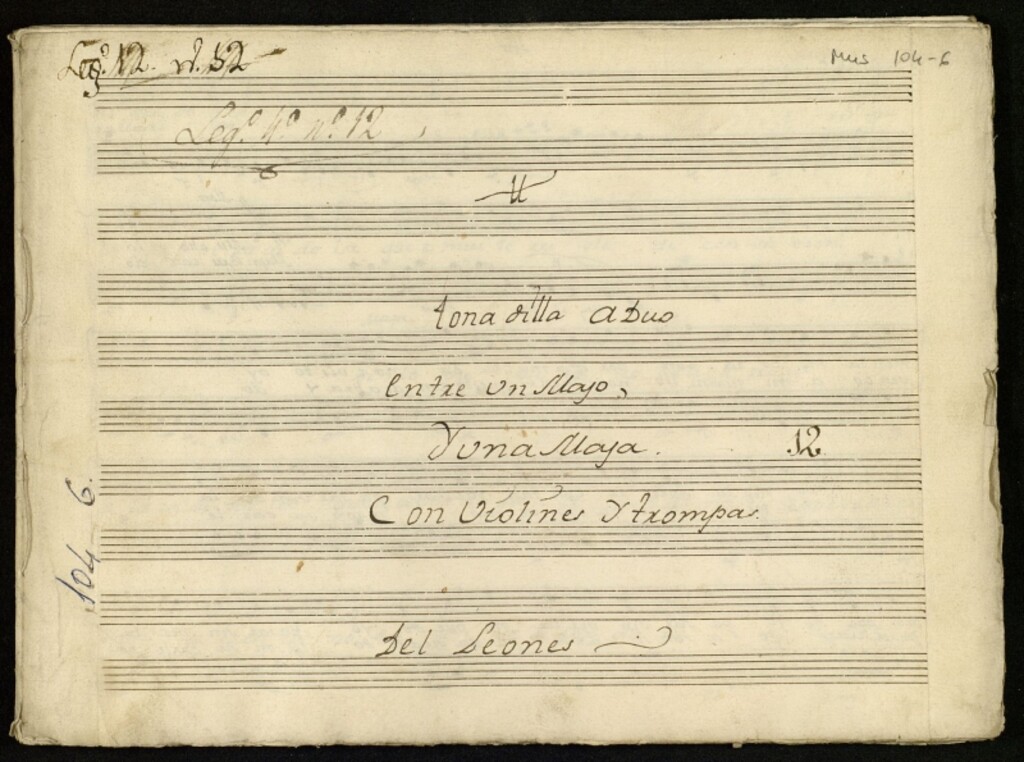 Leg.º 12. nº. 52
Mus 104-6
Legº 4º nº 12
tonadilla a Duo
Entre un Majo,
Y una Maja. 12
Con Violines Y trompas.
104 6.
Del Leones